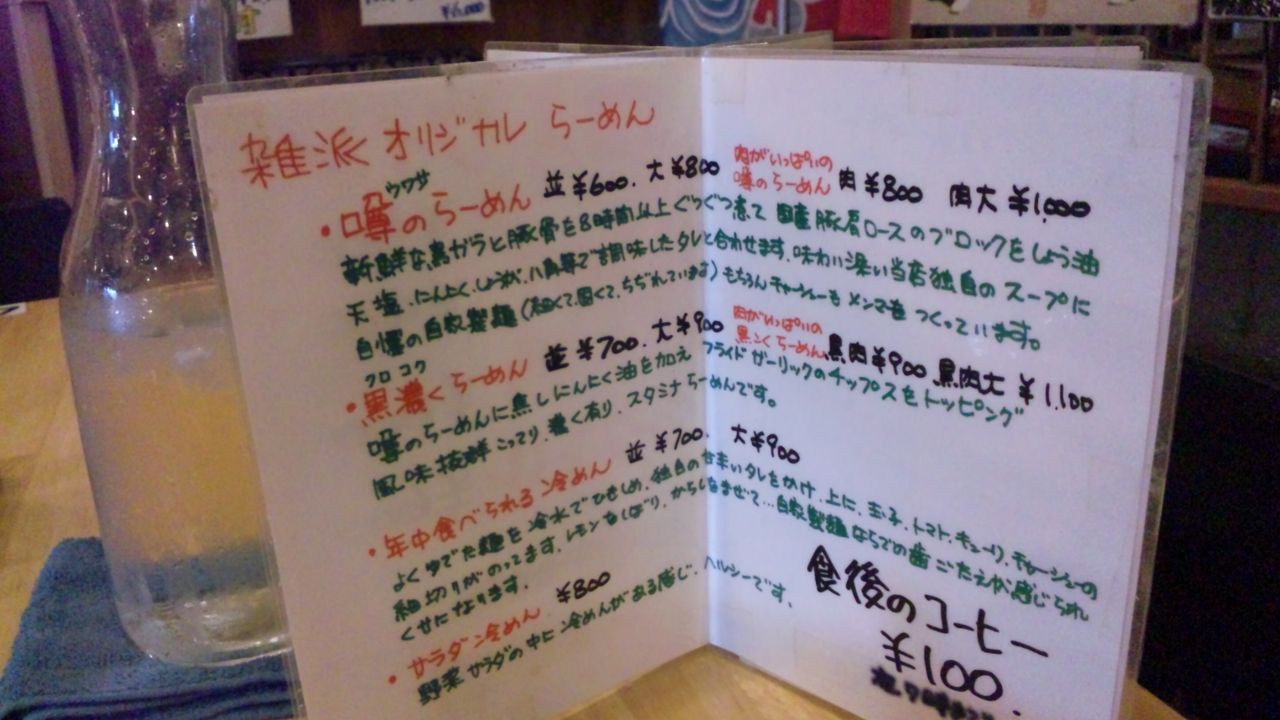 ¥1,000
雑派 オリジナル らーめん
ウワサ
・噂のらーめん 並¥600. 大¥800 肉がいっぱいの噂のらーめん 肉¥800 肉大 ¥1,000
新鮮な鳥ガラと豚骨を8時間以上ぐつぐつ煮て 国産豚肩ロースのブロックをしょう油
天塩、にんにく、しょうが、八角等で調味したタレと合わせます。味わい深い当店独自のスープに
自慢の自家製麺(細くて、固くて、ちぢれています) もちろんチャーシューも メンマも つくっています。
クロ コク
・黒濃くらーめん 並 ¥700. 大¥900 肉がいっぱいの黒こくらーめん 黒肉¥900 黒肉大 ¥1,100
噂のらーめんに焦しにんにく油を加え フライドガーリックのチップスをトッピング
風味抜群 こってり、濃く有り、スタミナらーめんです。
・年中食べられる冷めん 並 ¥700. 大¥900
よくゆでた麺を冷水でひきしめ、独自の甘辛いタレをかけ、上に、玉子、トマト、キューリ、チャーシューの
細切りがのってます。レモンをしぼり、からしをまぜて…自家製麺ならでの歯ごたえが感じられ
くせになります。
・サラダ冷めん ¥800
野菜サラダの中に冷めんがある感じ、ヘルシーです。
食後のコーヒー
¥100.